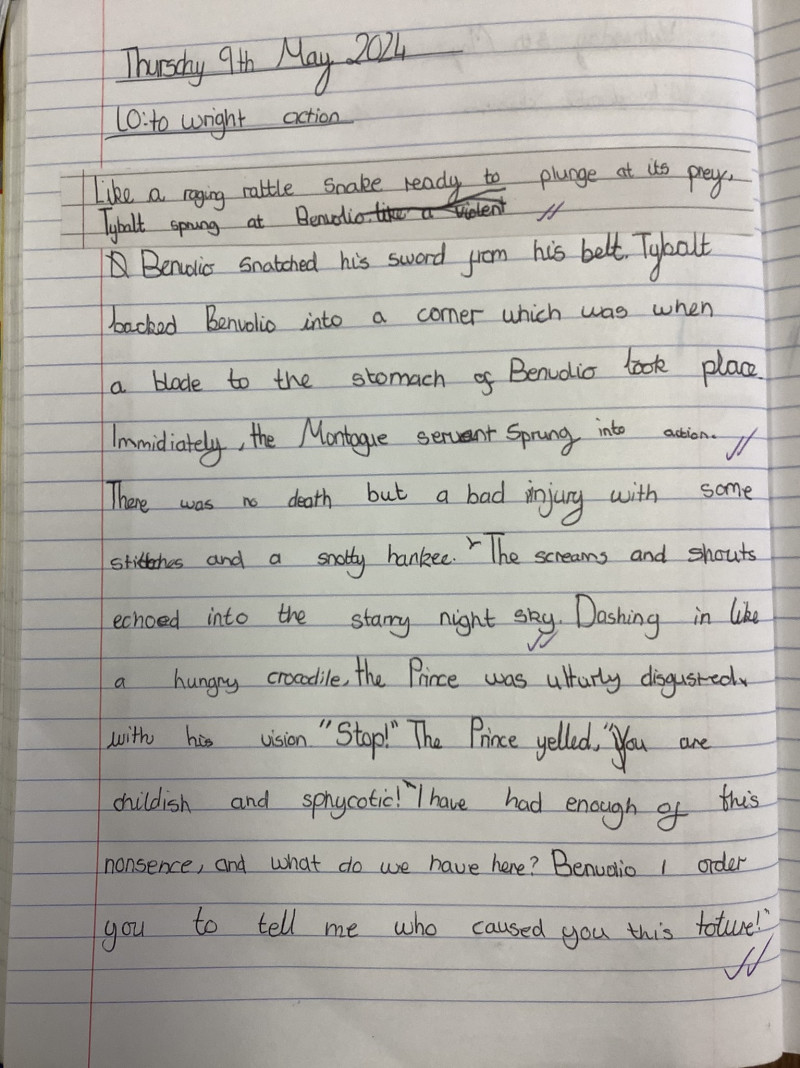 Thursday 9th May 2024
LO: to wright action
Like a raging rattle snake ready to plunge at its prey,
Tybalt sprung at Benvolio. like a violent
Benvolio snatched his sword from his belt. Tybalt
backed Benvolio into a corner which was when
a blade to the stomach of Benvolio took place.
Immidiately, the Montague servant sprung into action.
There was no death but a bad injury with some
stitches and a snotty hankee. The screams and shouts
echoed into the starry night sky. Dashing in like
a hungry crocadile, the Prince was ulturly disgusted
with his vision "Stop!" The Prince yelled, "You are
childish and sphycotic!" I have had enough of this
nonsence, and what do we have here? Benvolio I order
you to tell me who caused you this toture!"